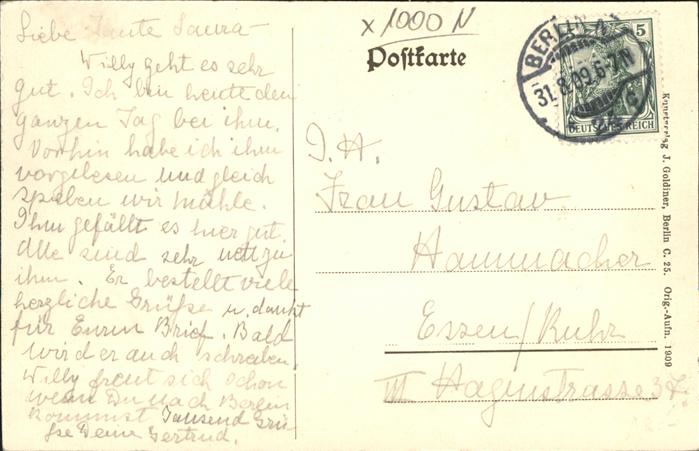 x 1000 N
Postkarte
BERLIN N
31.8.09.6-7N
24
c
5
DEUTSCHES REICH
Liebe Tante Laura –
Willy geht es sehr
gut. Ich bin heute den
ganzen Tag bei ihm.
Vorhin habe ich ihm
vorgelesen und gleich
spielen wir Mühle.
Ihm gefällt es hier gut.
Alle sind sehr nett zu
ihm. Er bestellt viele
herzliche Grüße u. dankt
für Euren Brief. Bald
wird er auch schreiben.
Willy freut sich schon
wenn Du nach Berlin
kommst. Tausend Grü-
ße Deine Gertrud.
I. H.
Frau Gustav
Hammacher
Essen/Ruhr
III Hagenstrasse 37.
Kunstverlag J. Goldiner, Berlin C. 25. Orig.-Aufn. 1909